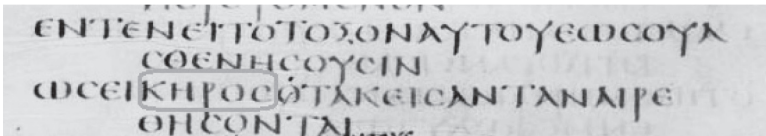 ΕΝΤΕΝΕΙΤΟΤΟΞΟΝΑΥΤΟΥΕΩϹΟΥΑ
ϹΘΕΝΗϹΟΥϹΙΝ
ΩϹΕΙΚΗΡΟϹΟΤΑΚΕΙϹΑΝΤΑΝΑΙΡΕ
ΘΗϹΟΝΤΑΙ